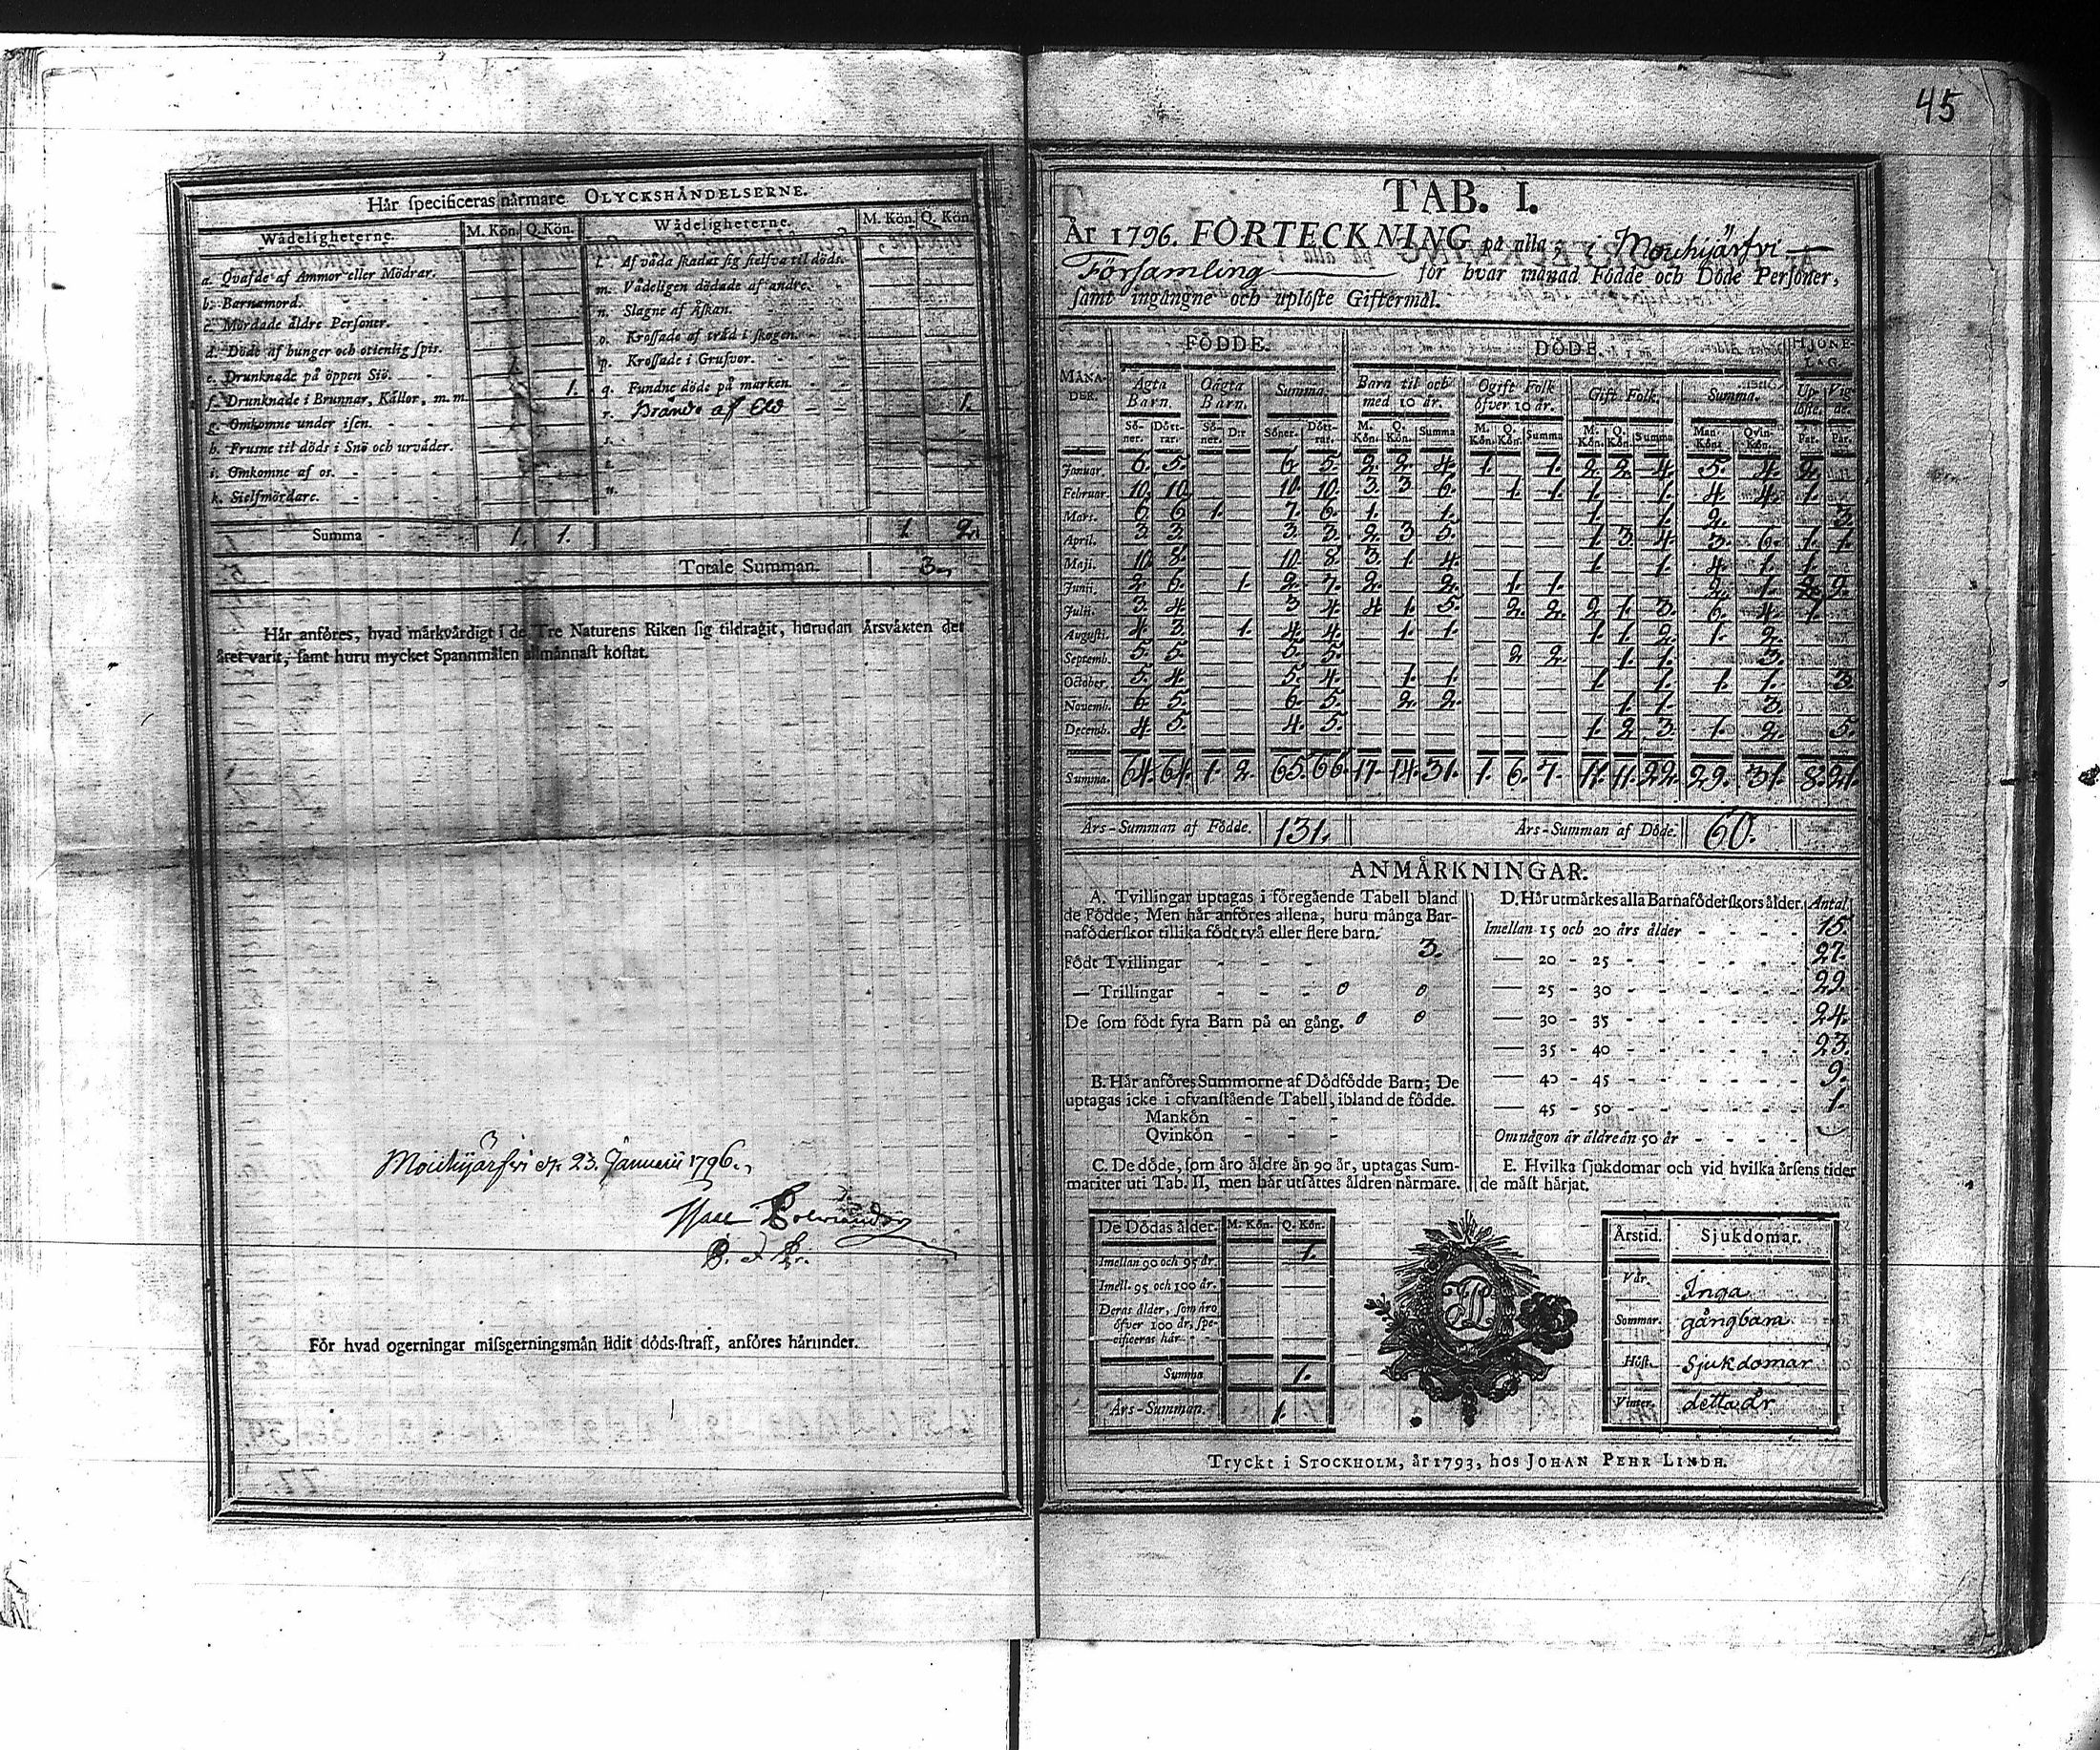 45
Hår specificeras nårmare OLYCKSHÅNDELSERNE.
Wådeligheterne. M. Kön. Q. Kön. Wådeligheterne. M. Kön. Q. Kön.
a. Qvafde af Ammor eller Mödrar.
b. Barnamord.
c. Mördade åldre Personer.
d. Döde af hunger och otienlig spis.
e. Drunknade på öppen Siö. 1.
f. Drunknade i Brunnar, Kållor, m. m. 1.
g. Omkomne under isen.
h. Frusne til döds i Snö och urvåder.
i. Omkomne af os.
k. Sielfmördare.
l. Af våda skadat sig sielfva til döds.
m. Vådeligen dödade af andre.
n. Slagne af Åskan.
o. Krossade af tråd i skogen.
p. Krossade i Grufvor.
q. Fundne döde på marken.
r. Brände af Eld 1.
s.
t.
u.
Summa 1. 1. 1. 2.
Totale Summan. 3.
Hår anföres, hvad mårkvårdigt i de Tre Naturens Riken sig tildragit, hurudan Årsvåxten det
året varit, samt huru mycket Spannmålen allmånnast kostat.
Mouhijärfvi 23. Januarii 1796.
För hvad ogerningar missgerningsmån lidit döds-straff, anföres hårunder.
TAB. I.
År 1796. FÖRTECKNING på alla i Mouhijärfvi
Församling för hvar månad Födde och Döde Personer,
samt ingångne och uplöste Giftermål.
FÖDDE. DÖDE. HJONE-LAG.
MÅNADER. Ågta Barn. Oågta Barn. Summa. Barn til och med 10 år. Ogift Folk öfver 10 år. Gift Folk. Summa. Uplöste. Vigde.
Söner. Döttrar. Söner. D:r Söner. Döttrar. M. Kön. Q. Kön. Summa M. Kön. Q. Kön. Summa M. Kön. Q. Kön. Summa Man-Kön. Qvin-Kön. Par. Par.
Januar. 6. 5. 6. 5. 2. 2. 4. 1. 1. 2. 2. 4. 5. 4. 2.
Februar. 10. 10. 10. 10. 3. 3 6. 1. 1. 1. 1. 4. 4. 1.
Mart. 6 6 1. 7. 6. 1. 1. 1. 1. 2. 3.
April. 3 3. 3. 3. 2. 3 5. 1. 3. 4. 3. 6. 1. 1.
Maji. 10. 8. 10. 8. 3. 1. 4. 1. 1. 4. 1. 1.
Junii. 2. 6. 1. 2. 7. 2. 2. 1. 1. 2. 1. 2. 9.
Julii. 3. 4. 3 4. 4 1. 5. 2. 2. 2 1. 3. 6. 4. 1.
Augusti. 4 3. 1. 4. 4. 1. 1. 1. 1. 2. 1. 2.
Septemb. 5. 5. 5. 5. 2. 2. 1. 1. 3.
October. 5. 4. 5. 4. 1. 1. 1. 1. 1. 1. 3.
Novemb. 6. 5. 6. 5. 2. 2. 1. 1. 3
Decemb. 4. 5. 4. 5. 1. 2. 3. 1. 2. 5.
Summa. 64. 64. 1. 2. 65. 66. 17. 14. 31. 1. 6. 7. 11. 11. 22. 29. 31. 8. 21.
Års-Summan af Födde. 131. Års-Summan af Döde. 60.
ANMÅRKNINGAR.
A. Tvillingar uptagas i föregående Tabell bland
de Födde; Men hår anföres allena, huru många Bar-
naföderskor tillika födt två eller flere barn.
Födt Tvillingar 3.
— Trillingar 0 0
De som födt fyra Barn på en gång. 0 0
B. Hår anföres Summorne af Dödfödde Barn; De
uptagas icke i ofvanstående Tabell, ibland de födde.
Mankön
Qvinkön
C. De döde, som åro åldre ån 90 år, uptagas Sum-
mariter uti Tab. II, men hår utsåttes åldren nårmare.
D. Hår utmårkes alla Barnaföderskors ålder. Antal
Imellan 15 och 20 års ålder 15.
— 20 - 25 27.
— 25 - 30 29.
— 30 - 35 24.
— 35 - 40 23.
— 40 - 45 9.
— 45 - 50 1.
Om någon år åldre ån 50 år
E. Hvilka sjukdomar och vid hvilka årsens tider
de måst hårjat.
De Dödas ålder. M. Kön. Q. Kön.
Imellan 90 och 95 år. 1.
Imell. 95 och 100 år.
Deras ålder, som åro
öfver 100 år, spe-
cificeras hår
Summa 1.
Års-Summan. 1.
Årstid. Sjukdomar.
Vår. Inga
Sommar. gångbara
Höst. Sjukdomar
Vinter. detta år
Tryckt i STOCKHOLM, år 1793, hos JOHAN PEHR LINDH.